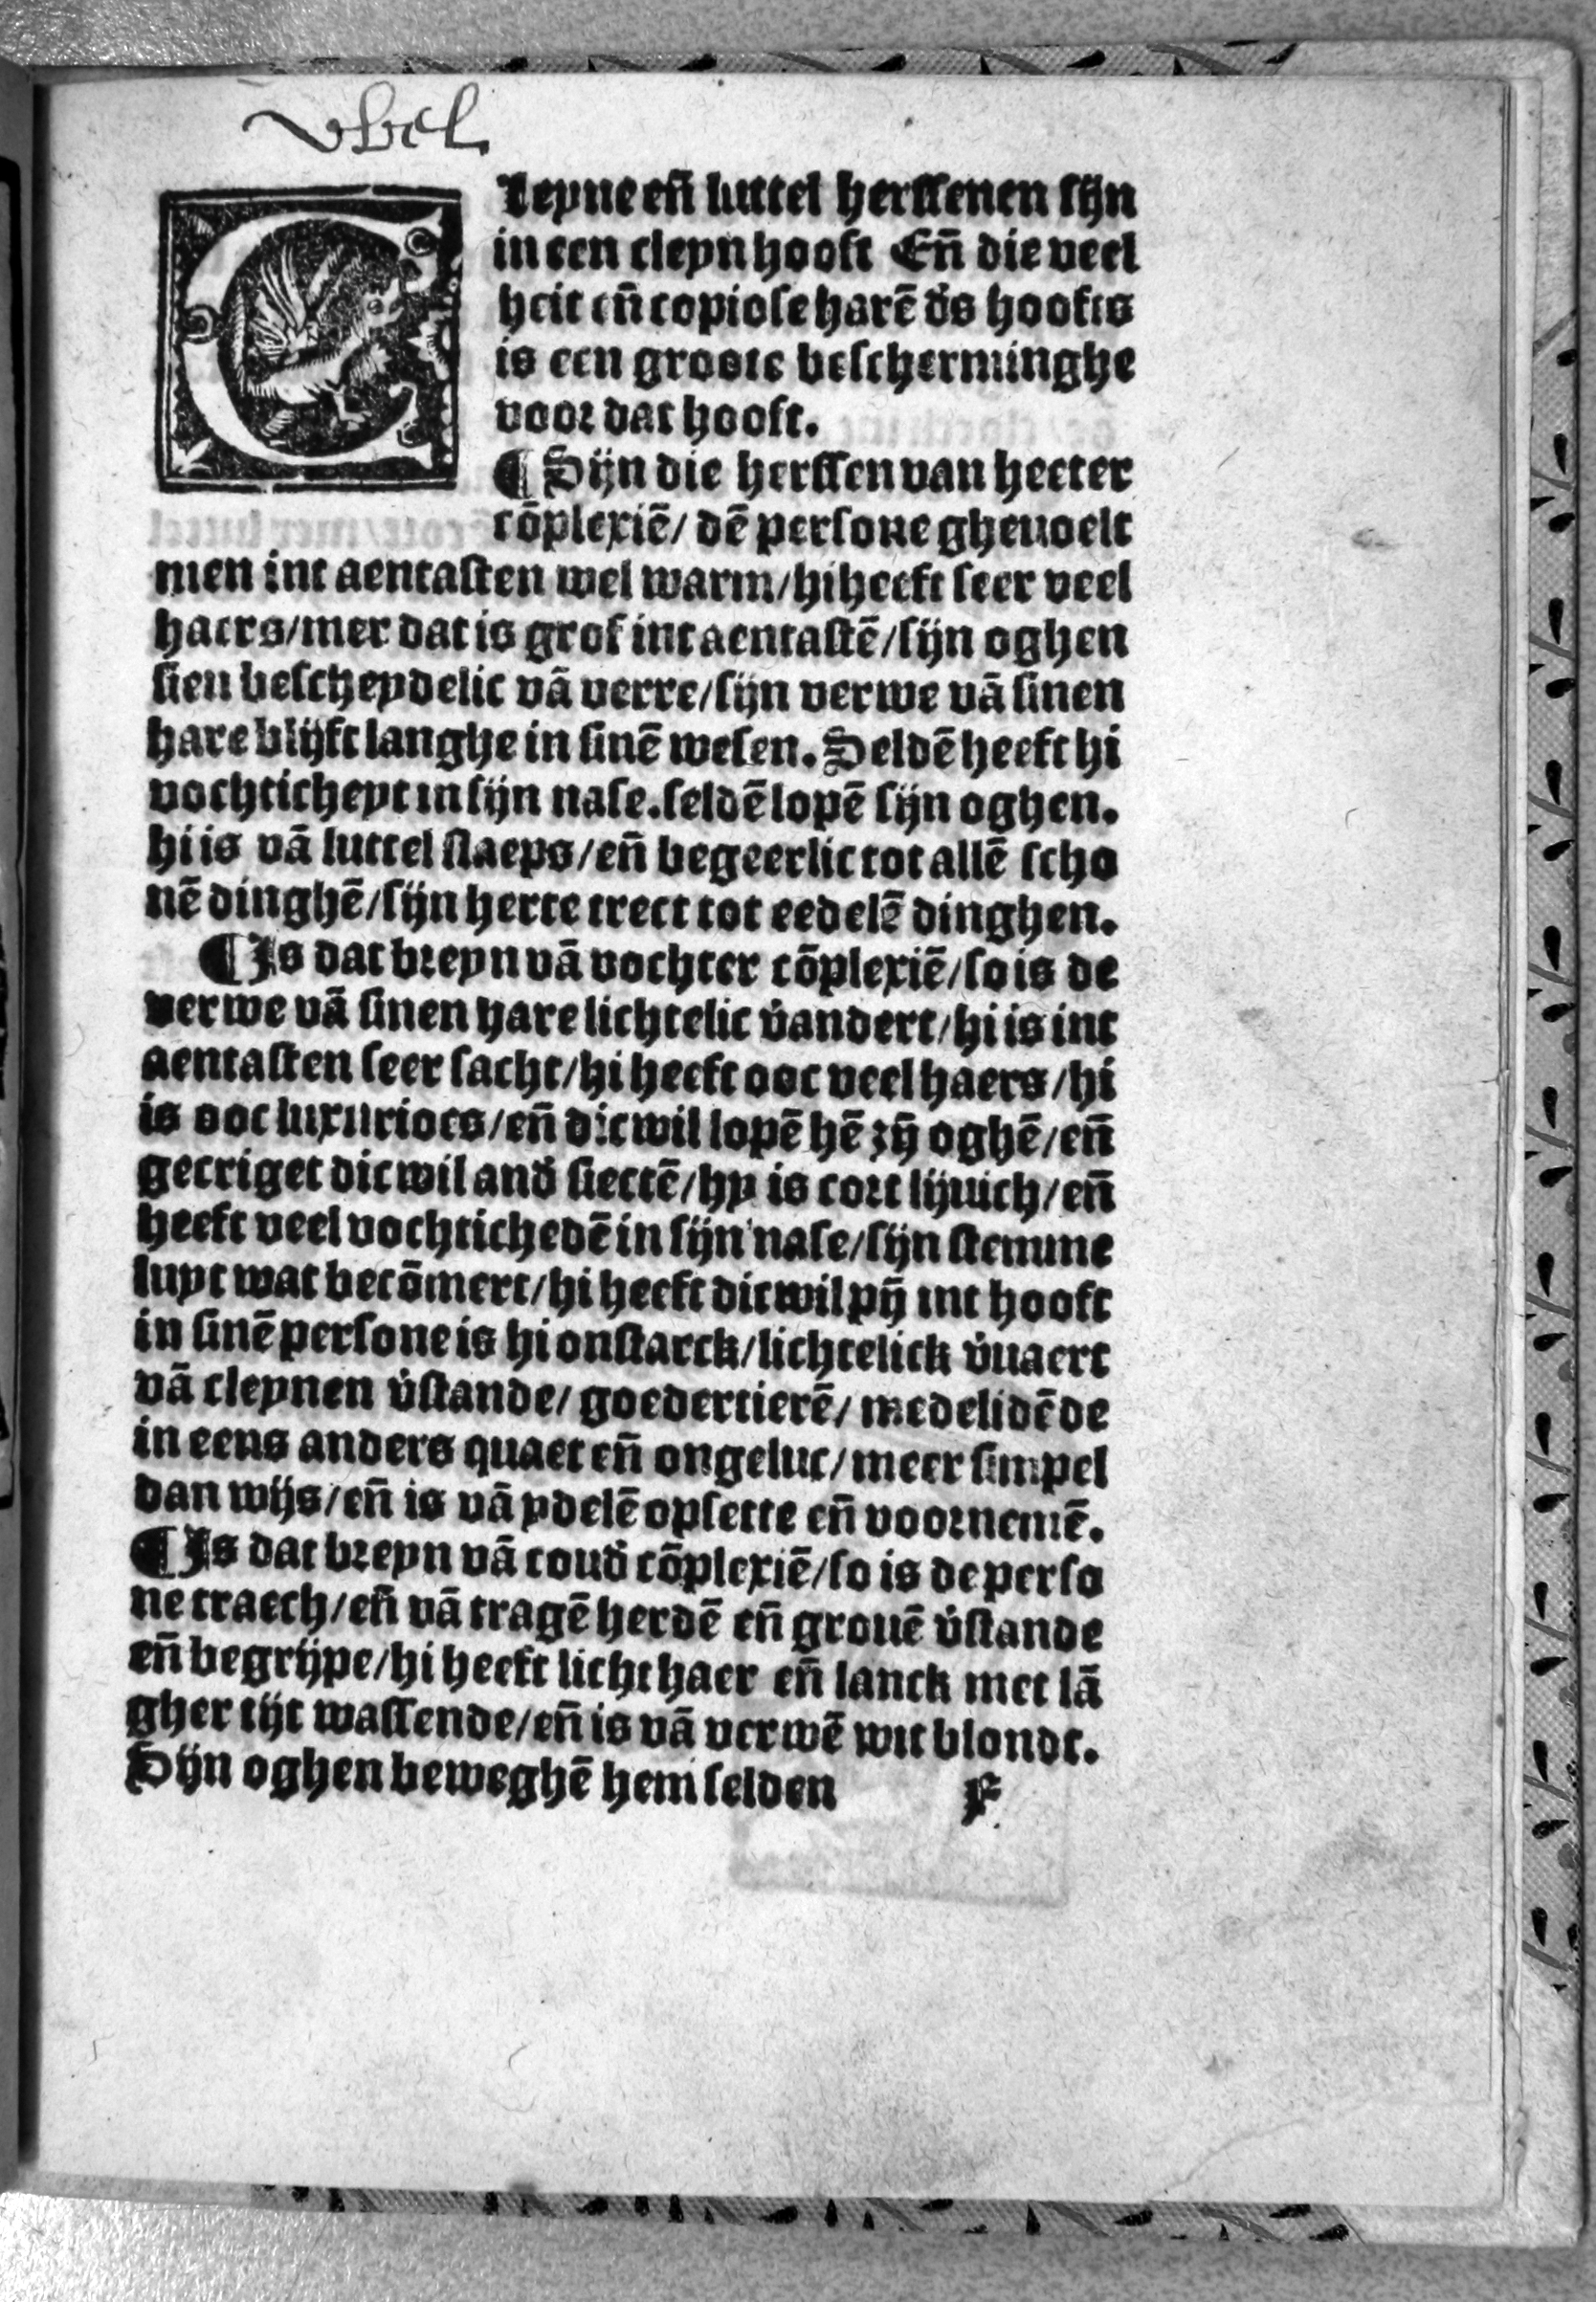 vbel
Cleyne eñ luttel herssenen sijn
in een cleyn hooft Eñ die veel
heit eñ copiose harē d̕s hoofts
is een groote bescherminghe
voor dat hooft.
¶ Sijn die herssen van heeter
cōplexiē/ dē persone ghevoelt
men int aentasten wel warm/hi heeft seer veel
haers/mer dat is grof int aentastē/sijn oghen
sien bescheydelic vā verre/sijn verwe vā sinen
hare blijft langhe in sinē wesen. Seldē heeft hi
vochticheyt in sijn nase. seldē lopē sijn oghen.
hi is vā luttel slaeps/eñ begeerlic tot allē scho
nē dinghē/sijn herte trect tot eedelē dinghen.
¶ Is dat breyn vā vochter cōplexiē/so is de
verwe vā sinen hare lichtelic v̕andert/hi is int
aentasten seer sacht/hi heeft ooc veel haers/hi
is ooc luxurioes/eñ dicwil lopē hē zȳ oghē/eñ
gecriget dicwil and̕ siectē/hy is cort lijuich/eñ
heeft veel vochtichedē in sijn nase/sijn stemme
luyt wat becōmert/hi heeft dicwil pȳ int hooft
in sinē persone is hi onstarck/lichtelick v̕uaert
vā cleynen v̕stande/ goedertierē/ medelidēde
in eens anders quaet eñ ongeluc/meer simpel
dan wijs/eñ is vā ydelē opsette eñ voornemē.
¶ Is dat breyn vā coud̕ cōplexiē/so is de perso
ne traech/eñ vā tragē herdē eñ grouē v̕stande
eñ begrijpe/hi heeft licht haer eñ lanck met lā
gher tijt wassende/eñ is vā verwē wit blondt.
Sijn oghen beweghē hem selden F